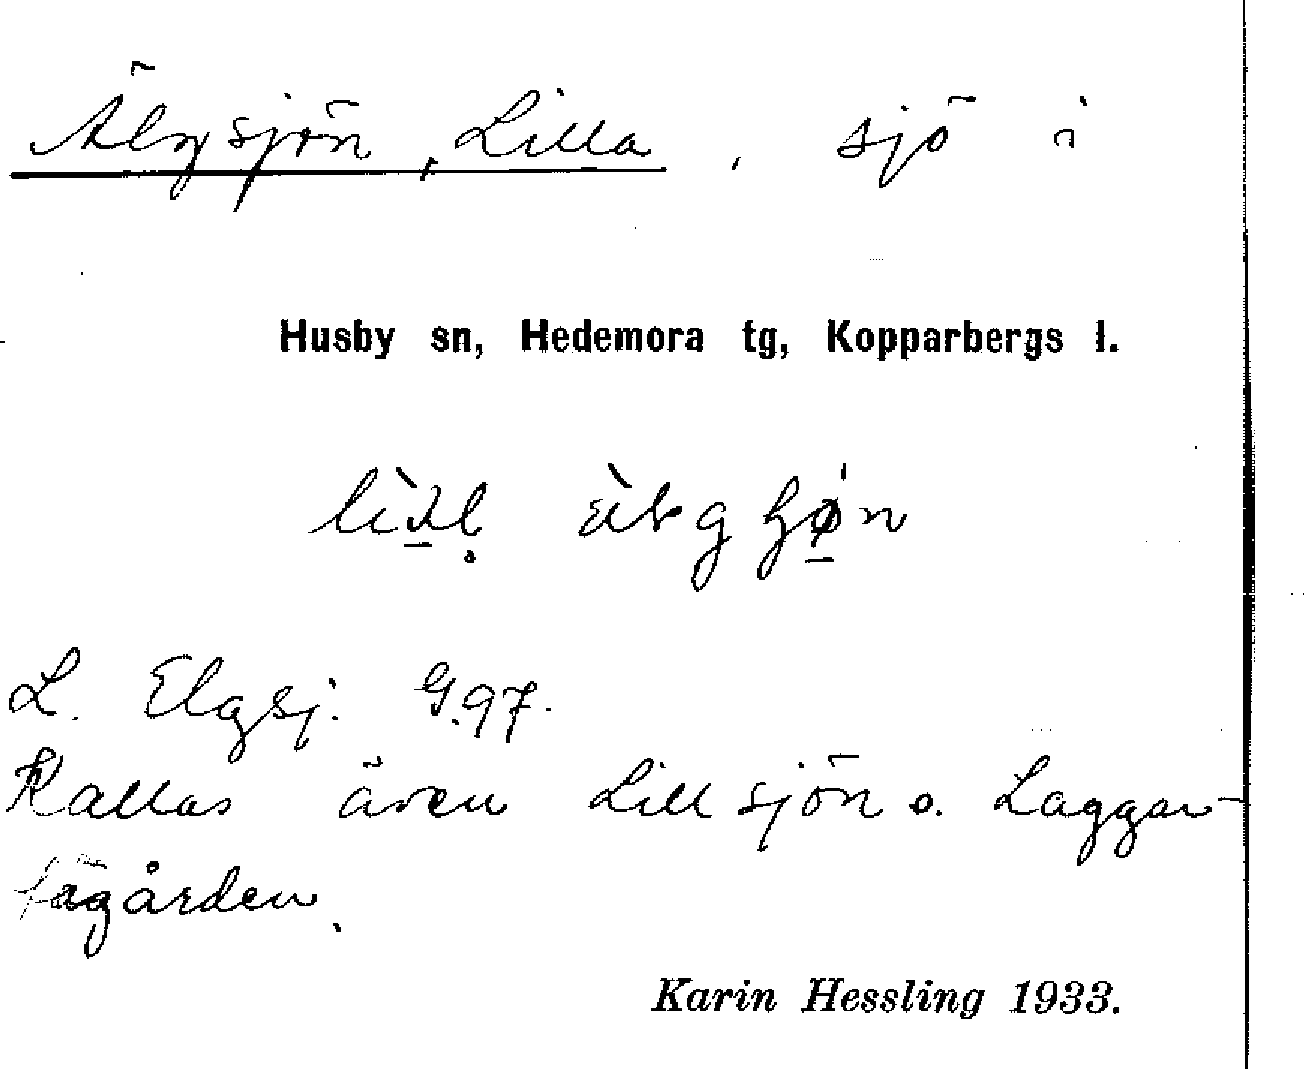 Älgsjön, Lilla, sjö i
Husby sn, Hedemora tg, Kopparbergs l.
L. Elgsj. G.97.
Kallas även Lillsjön o. Laggar-
fägården.
Karin Hessling 1933.